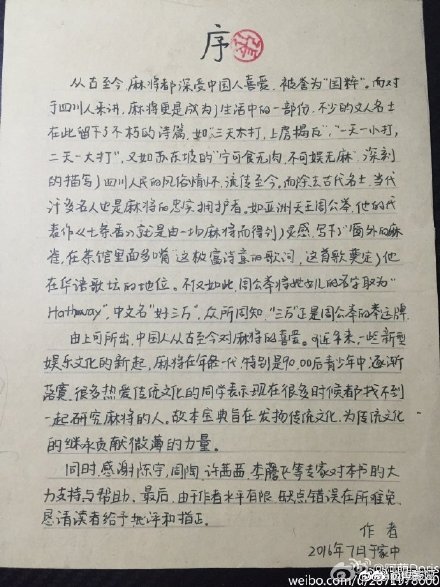 序
从古至今,麻将都深受中国人喜爱,被誉为"国粹"。而对
于四川人来讲,麻将更是成为了生活中的一部份,不少的文人名士
在此留下了不朽的诗篇,如"三天不打,上房揭瓦","一天一小打,
二天一大打",又如苏东坡的"宁可食无肉,不可娱无麻",深刻
的描写了四川人民的风俗情怀,流传至今。而除去古代名士,当代
许多名人也是麻将的忠实拥护者。如亚洲天王周公举,他的代
表作《七条香》就是由一场麻将而得到了灵感,写下了"窗外的麻
雀,在茶馆里面多嘴"这极富诗意的歌词,这首歌奠定了他
在华语歌坛的地位。不仅如此,周公举将他女儿的名字取为"
Hathaway",中文名"好三万",众所周知,"三万"正是周公举的幸运牌。
由上可所出,中国人从古至今对麻将的喜爱。可近年来,一些新型
娱乐文化的新起,麻将在年轻一代,特别是90,00后青少年中,逐渐
没落,很多热爱传统文化的同学表示现在很多时候都找不到
一起研究麻将的人。故本宝典旨在发扬传统文化,为传统文化
的继承贡献微薄的力量。
同时,感谢陈宇,周陶,许茜茜,李蘑飞等专家对本书的大
力支持与帮助。最后,由于作者水平有限,缺点错误在所难免,
恳请读者给予批评和指正。
作者
2016年7月于家中
weibo.com/u/2871178060